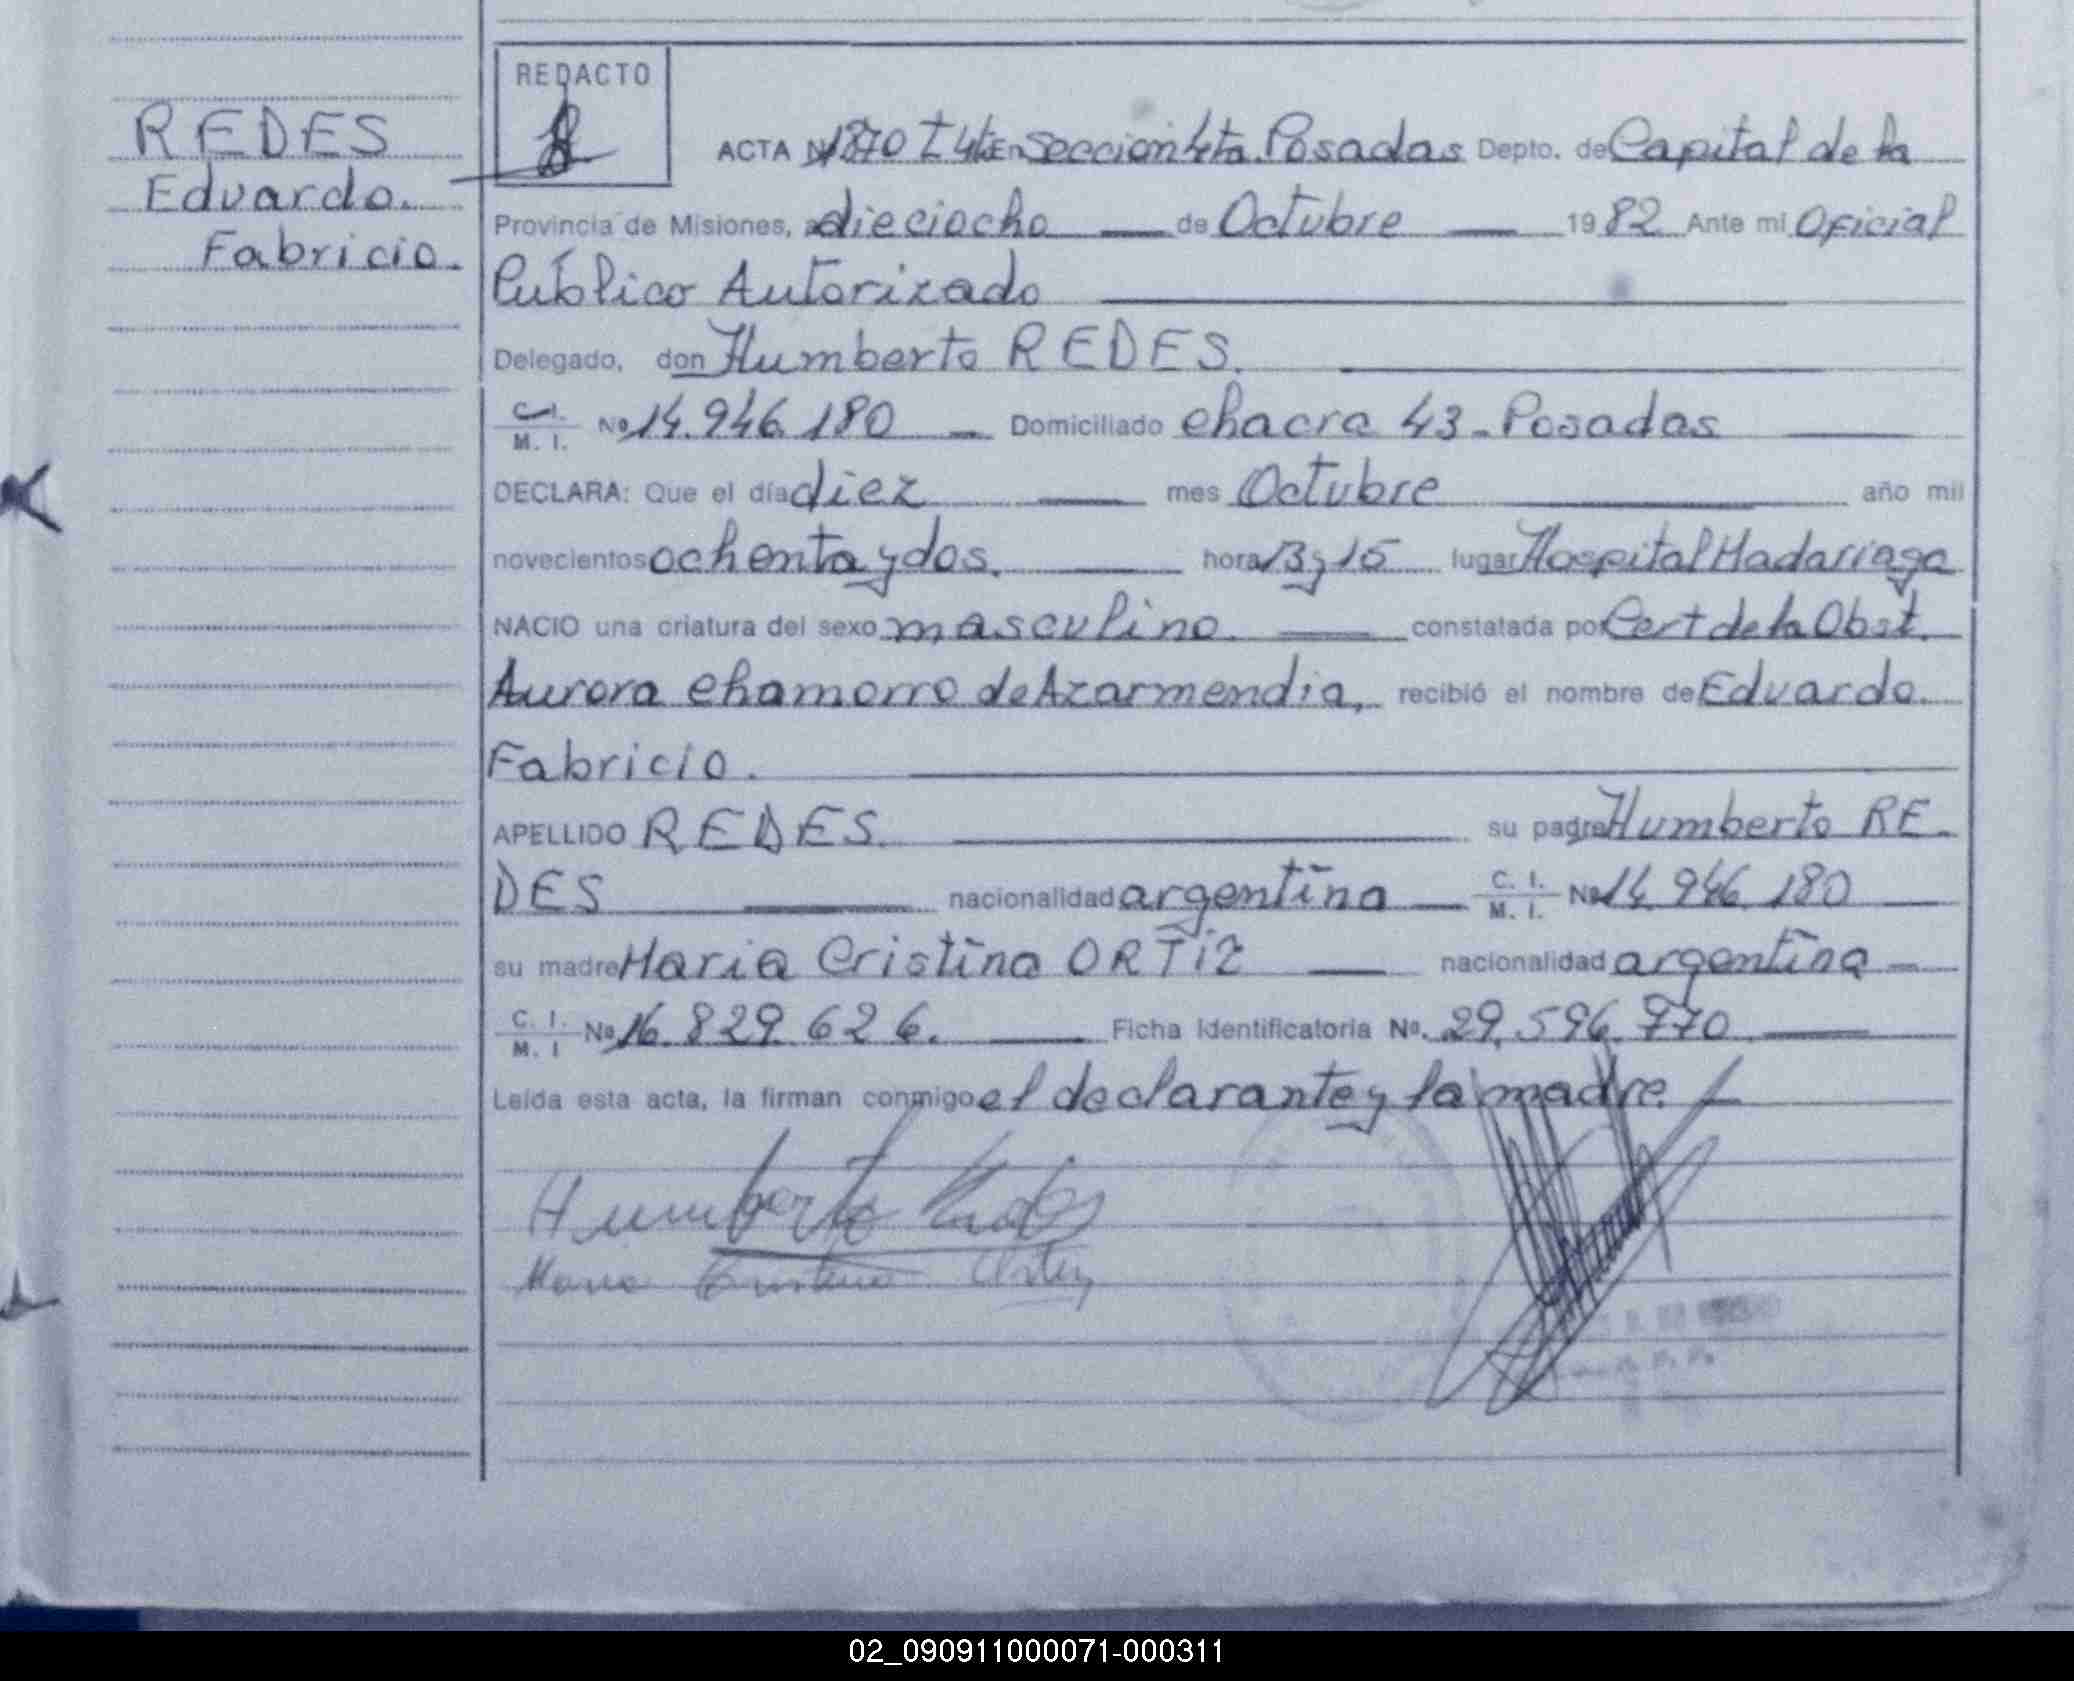 REDES
Eduardo.
Fabricio.
REDACTO
ACTA Nº 1870 T 4ta En Seccion 4ta. Posadas Depto. de Capital de la
Provincia de Misiones, a dieciocho de Octubre 1982 Ante mi Oficial
Público Autorizado
Delegado, don Humberto REDES.
C. I. M. I. Nº 14.946.180 Domiciliado chacra 43 - Posadas
DECLARA: Que el día diez mes Octubre año mil
novecientos ochenta y dos. hora 13 y 15 lugar Hospital Madariaga
NACIO una criatura del sexo masculino. constatada por Cert de la Obst.
Aurora Chamorro de Azarmendia, recibió el nombre de Eduardo.
Fabricio.
APELLIDO REDES. su padre Humberto RE-
DES nacionalidad argentina C. I. M. I. Nº 14.946.180
su madre Maria Cristina ORTiZ nacionalidad argentina
C. I. M. I Nº 16.829.626. Ficha Identificatoria Nº. 29.596.770
Leída esta acta, la firman conmigo el declarante y la madre.
Humberto Redes
Maria Cristina Ortiz
02_090911000071-000311